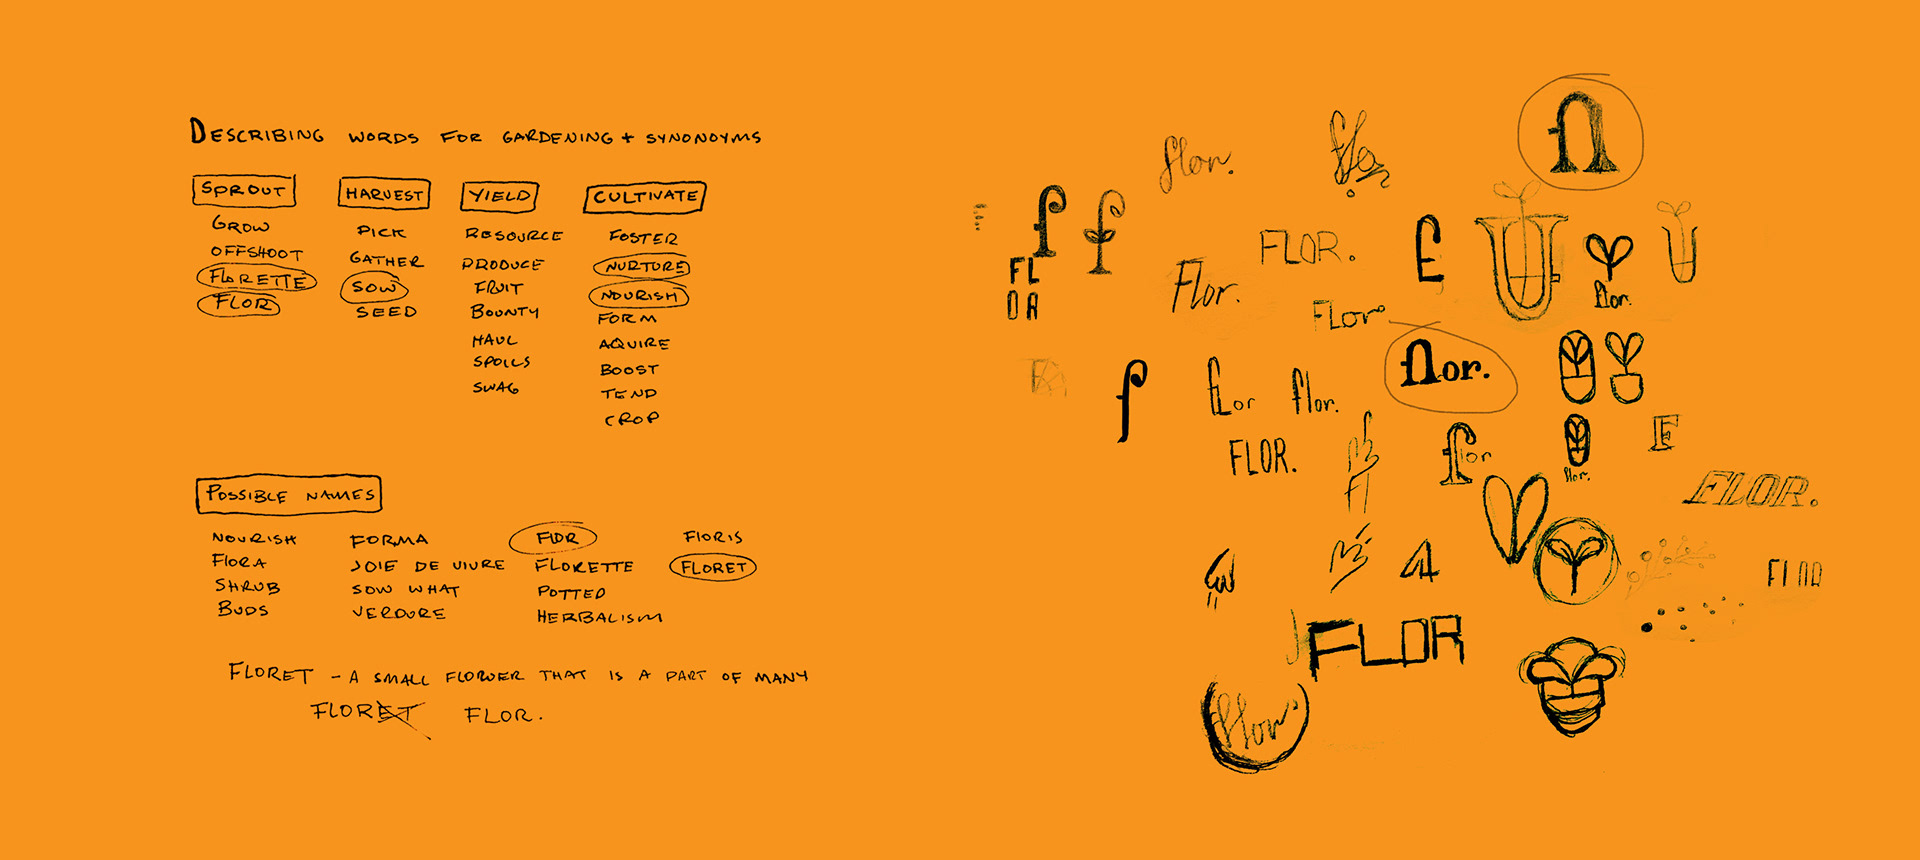 DESCRIBING WORDS FOR GARDENING + SYNONOYMS
SPROUT
GROW
OFFSHOOT
FLORETTE
FLOR
HARVEST
PICK
GATHER
SOW
SEED
YIELD
RESOURCE
PRODUCE
FRUIT
BOUNTY
HAUL
SPOILS
SWAG
CULTIVATE
FOSTER
NURTURE
NOURISH
FORM
AQUIRE
BOOST
TEND
CROP
POSSIBLE NAMES
NOURISH
FLORA
SHRUB
BUDS
FORMA
JOIE DE VIVRE
SOW WHAT
VERDURE
FLOR
FLORETTE
POTTED
HERBALISM
FLORIS
FLORET
FLORET - A SMALL FLOWER THAT IS A PART OF MANY
FLORET FLOR.
flor.
flo
fl
f
f
FL
OR
FLOR.
Flor.
FLor
flor.
flor.
f
flor
flor.
FLOR.
flor
flor.
E
Fl
FLOR.
FLOR
FLOR
flor